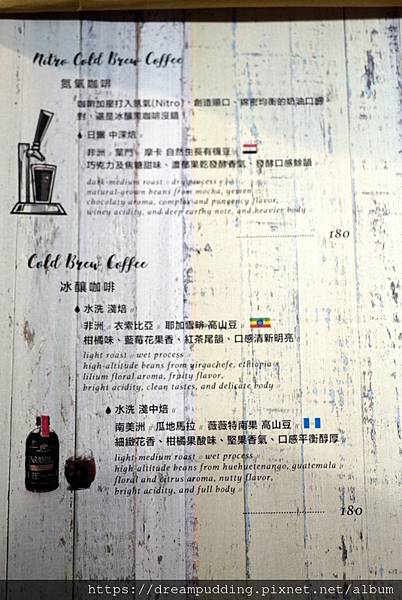 Nitro Cold Brew Coffee
氮氣咖啡
咖啡加壓打入氮氣(Nitro)，創造順口、綿密均衡的奶油口感
對，這是冰釀黑咖啡沒錯
日曬 中深焙
非洲 // 葉門 // 摩卡 自然生長有機豆 //
巧克力及焦糖甜味、濃郁果乾發酵香氣、發酵口感餘韻
dark-medium roast // dry process //
natural-grown beans from mocha, yemen //
chocolaty aroma, complex and pungency flavor,
winey acidity, and deep earthy note, and heavier body //
180
Cold Brew Coffee
冰釀咖啡
水洗 淺焙
非洲 // 衣索比亞 // 耶加雪啡 高山豆 //
柑橘味、藍莓花果香、紅茶尾韻、口感清新明亮
light roast // wet process //
high-altitude beans from yirgachefe, ethiopia //
lilium floral aroma, fruity flavor,
bright acidity, clean tastes, and delicate body //
水洗 淺中焙
南美洲 // 瓜地馬拉 // 薇薇特南果 高山豆 //
細緻花香、柑橘果酸味、堅果香氣、口感平衡醇厚
light-medium roast // wet process //
high-altitude beans from huehuetenango, guatemala //
floral and citrus aroma, nutty flavor,
bright acidity, and full body //
180
https://dreampudding.pixnet.net/album